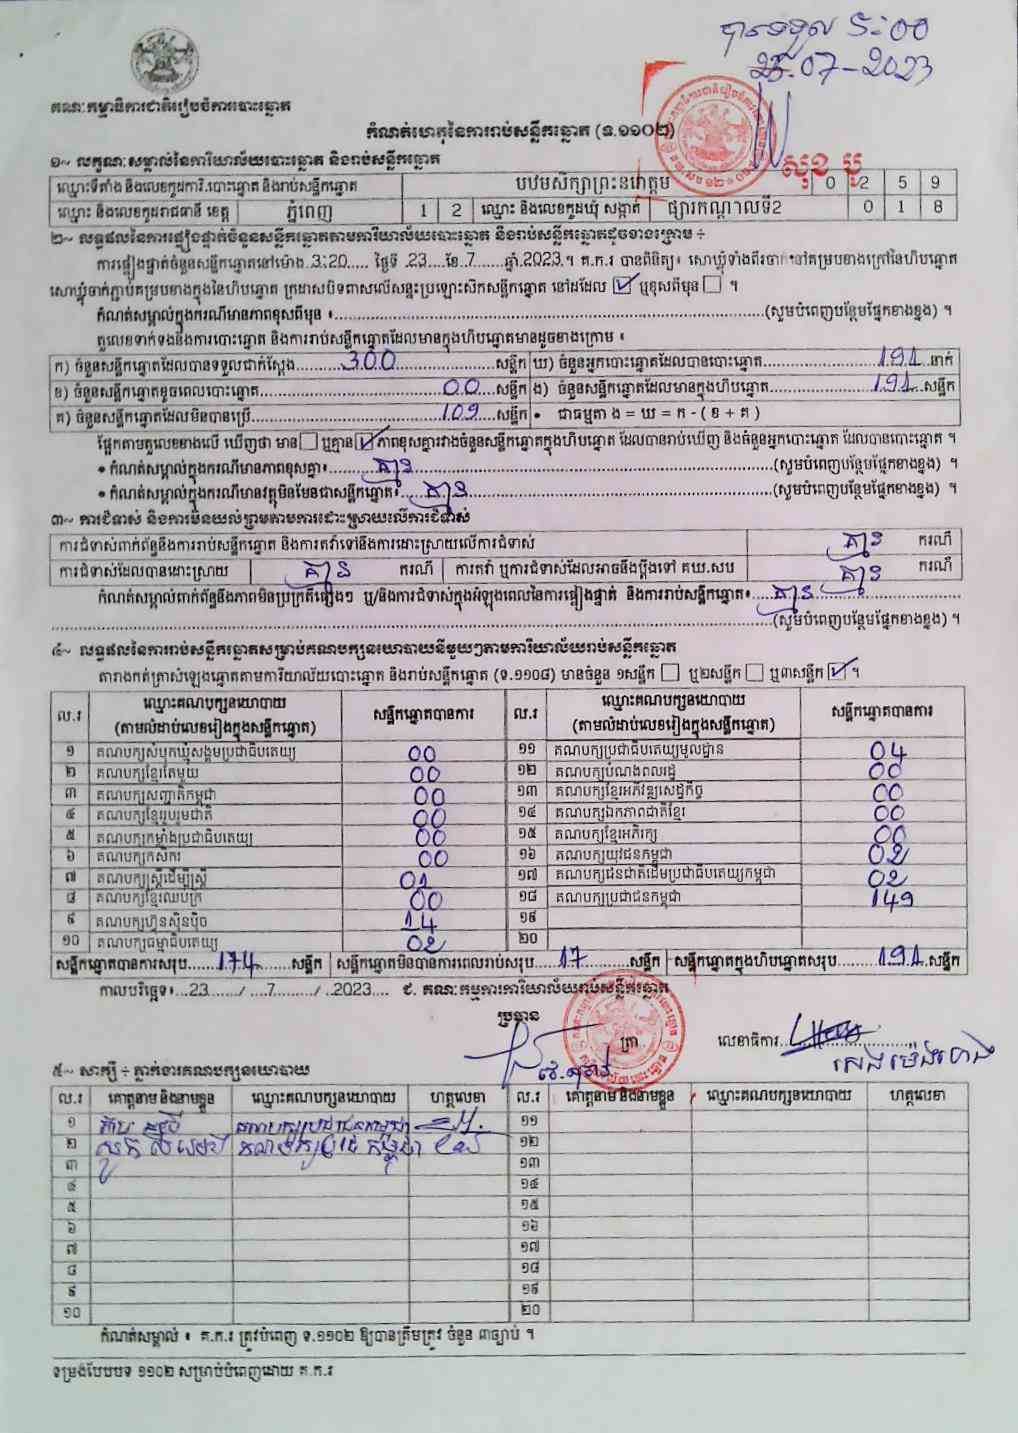 បានទទួល ៩:00
25.07-2023
គណៈកម្មាធិការជាតិរៀបចំការបោះឆ្នោត
កំណត់ហេតុនៃការរាប់សន្លឹកឆ្នោត (ទ.១១០២)
សុខ ប៊ូ
១~ លក្ខណៈសម្គាល់នៃការិយាល័យបោះឆ្នោត និងរាប់សន្លឹកឆ្នោត
ឈ្មោះទីតាំង និងលេខកូដការិ.បោះឆ្នោត និងរាប់សន្លឹកឆ្នោត បឋមសិក្សាព្រះនរោត្តម 0 2 5 9
ឈ្មោះ និងលេខកូដរាជធានី ខេត្ត ភ្នំពេញ 1 2 ឈ្មោះ និងលេខកូដឃុំ សង្កាត់ ផ្សារកណ្តាលទី2 0 1 8
២~ លទ្ធផលនៃការផ្ទៀងផ្ទាត់ចំនួនសន្លឹកឆ្នោតតាមការិយាល័យបោះឆ្នោត និងរាប់សន្លឹកឆ្នោតដូចខាងក្រោម ÷
ការផ្ទៀងផ្ទាត់ចំនួនសន្លឹកឆ្នោតនៅម៉ោង 3:20..... ថ្ងៃទី 23....ខែ.7......ឆ្នាំ.2023.។ គ.ក.រ បានពិនិត្យ៖ សោឃ្លុំទាំងពីរចាក់នៅគម្របខាងក្រៅនៃហិបឆ្នោត
សោឃ្លុំចាក់ភ្ជាប់គម្របខាងក្នុងនៃហិបឆ្នោត ក្រដាសបិទពាសលើសន្ទះប្រឡោះសិកសន្លឹកឆ្នោត នៅដដែល ☑ ឬខុសពីមុន ☐ ។
កំណត់សម្គាល់ក្នុងករណីមានភាពខុសពីមុន ៖..........(សូមបំពេញបន្ថែមផ្នែកខាងខ្នង) ។
តួលេខទាក់ទងនឹងការបោះឆ្នោត និងការរាប់សន្លឹកឆ្នោតដែលមានក្នុងហិបឆ្នោតមានដូចខាងក្រោម ៖
ក) ចំនួនសន្លឹកឆ្នោតដែលបានទទួលជាក់ស្តែង..........300..........សន្លឹក ឃ) ចំនួនអ្នកបោះឆ្នោតដែលបានបោះឆ្នោត..........191....នាក់
ខ) ចំនួនសន្លឹកឆ្នោតខូចពេលបោះឆ្នោត..........00....សន្លឹក ង) ចំនួនសន្លឹកឆ្នោតដែលមានក្នុងហិបឆ្នោត..........191....សន្លឹក
គ) ចំនួនសន្លឹកឆ្នោតដែលមិនបានប្រើ..........109....សន្លឹក • ជាធម្មតា ង = ឃ = ក - ( ខ + គ )
ផ្អែកតាមតួលេខខាងលើ ឃើញថា មាន ☐ ឬគ្មាន ☑ ភាពខុសគ្នារវាងចំនួនសន្លឹកឆ្នោតក្នុងហិបឆ្នោត ដែលបានរាប់ឃើញ និងចំនួនអ្នកបោះឆ្នោត ដែលបានបោះឆ្នោត ។
• កំណត់សម្គាល់ក្នុងករណីមានភាពខុសគ្នា៖..........គ្មាន..........(សូមបំពេញបន្ថែមផ្នែកខាងខ្នង) ។
• កំណត់សម្គាល់ក្នុងករណីមានវត្ថុមិនមែនជាសន្លឹកឆ្នោត៖..........គ្មាន..........(សូមបំពេញបន្ថែមផ្នែកខាងខ្នង) ។
៣~ ការជំទាស់ និងការមិនយល់ព្រមតាមការដោះស្រាយលើការជំទាស់
ការជំទាស់ពាក់ព័ន្ធនឹងការរាប់សន្លឹកឆ្នោត និងការតវ៉ាទៅនឹងការដោះស្រាយលើការជំទាស់ គ្មាន ករណី
ការជំទាស់ដែលបានដោះស្រាយ គ្មាន ករណី ការតវ៉ា ឬការជំទាស់ដែលអាចនឹងប្តឹងទៅ គឃ.សប គ្មាន ករណី
កំណត់សម្គាល់ពាក់ព័ន្ធនឹងភាពមិនប្រក្រតីផ្សេងៗ ឬ/និងការជំទាស់ក្នុងអំឡុងពេលនៃការផ្ទៀងផ្ទាត់ និងការរាប់សន្លឹកឆ្នោត៖....គ្មាន..........
..........(សូមបំពេញបន្ថែមផ្នែកខាងខ្នង) ។
៤~ លទ្ធផលនៃការរាប់សន្លឹកឆ្នោតសម្រាប់គណបក្សនយោបាយនីមួយៗតាមការិយាល័យរាប់សន្លឹកឆ្នោត
តារាងកត់ត្រាសំឡេងឆ្នោតតាមការិយាល័យបោះឆ្នោត និងរាប់សន្លឹកឆ្នោត (ទ.១១០៨) មានចំនួន ១សន្លឹក ☐ ឬ២សន្លឹក ☐ ឬ៣សន្លឹក ☑ ។
ល.រ ឈ្មោះគណបក្សនយោបាយ (តាមលំដាប់លេខរៀងក្នុងសន្លឹកឆ្នោត) សន្លឹកឆ្នោតបានការ ល.រ ឈ្មោះគណបក្សនយោបាយ (តាមលំដាប់លេខរៀងក្នុងសន្លឹកឆ្នោត) សន្លឹកឆ្នោតបានការ
១ គណបក្សសំបុកឃ្មុំសង្គមប្រជាធិបតេយ្យ 00 ១១ គណបក្សប្រជាធិបតេយ្យមូលដ្ឋាន 04
២ គណបក្សខ្មែរតែមួយ 00 ១២ គណបក្សបំណងពលរដ្ឋ 00
៣ គណបក្សសញ្ជាតិកម្ពុជា 00 ១៣ គណបក្សខ្មែរអភិវឌ្ឍសេដ្ឋកិច្ច 00
៤ គណបក្សខ្មែររួបរួមជាតិ 00 ១៤ គណបក្សឯកភាពជាតិខ្មែរ 00
៥ គណបក្សកម្លាំងប្រជាធិបតេយ្យ 00 ១៥ គណបក្សខ្មែរអភិរក្ស 00
៦ គណបក្សកសិករ 00 ១៦ គណបក្សយុវជនកម្ពុជា 02
៧ គណបក្សស្ត្រីដើម្បីស្ត្រី 01 ១៧ គណបក្សជនជាតិដើមប្រជាធិបតេយ្យកម្ពុជា 02
៨ គណបក្សខ្មែរឈប់ក្រ 00 ១៨ គណបក្សប្រជាជនកម្ពុជា 149
៩ គណបក្សហ៊្វុនស៊ិនប៉ិច 14 ១៩
១០ គណបក្សធម្មាធិបតេយ្យ 02 ២០
សន្លឹកឆ្នោតបានការសរុប.......174.......សន្លឹក សន្លឹកឆ្នោតមិនបានការពេលរាប់សរុប.....17.......សន្លឹក សន្លឹកឆ្នោតក្នុងហិបឆ្នោតសរុប.......191.....សន្លឹក
កាលបរិច្ឆេទ៖...23....../....7......../...2023.... ៩. គណៈកម្មការការិយាល័យរាប់សន្លឹកឆ្នោត
ប្រធាន
ត្រា
លេខាធិការ..........
សេង ម៉េងហេង
៥~ សាក្សី ÷ ភ្នាក់ងារគណបក្សនយោបាយ
ល.រ គោត្តនាម និងនាមខ្លួន ឈ្មោះគណបក្សនយោបាយ ហត្ថលេខា ល.រ គោត្តនាម និងនាមខ្លួន ឈ្មោះគណបក្សនយោបាយ ហត្ថលេខា
១ គណបក្សប្រជាជនកម្ពុជា ១១
២ ១២
៣ ១៣
៤ ១៤
៥ ១៥
៦ ១៦
៧ ១៧
៨ ១៨
៩ ១៩
១០ ២០
កំណត់សម្គាល់ ៖ គ.ក.រ ត្រូវបំពេញ ទ.១១០២ ឱ្យបានត្រឹមត្រូវ ចំនួន ៣ច្បាប់ ។
ទម្រង់បែបបទ ១១០២ សម្រាប់បំពេញដោយ គ.ក.រ